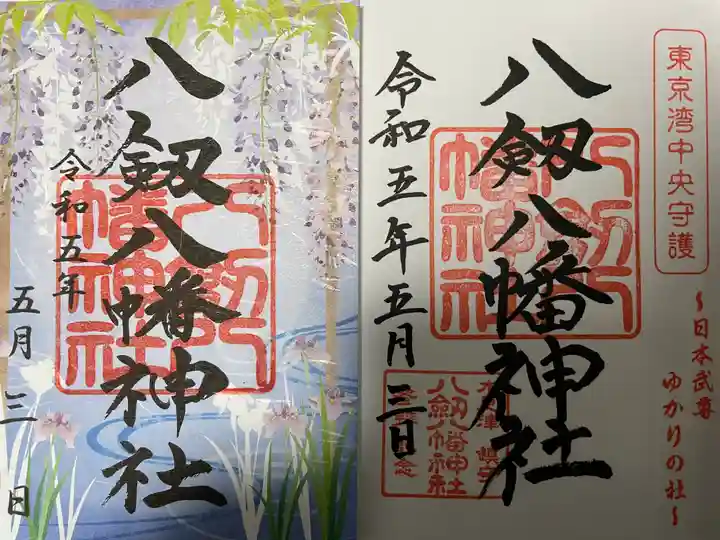 八劔八幡神社
令和五年
五月三日
八劔八幡神社
東京湾中央守護
八劔八幡神社
～日本武尊
ゆかりの社～
令和五年五月三日
八劔八幡神社
八劔八幡神社